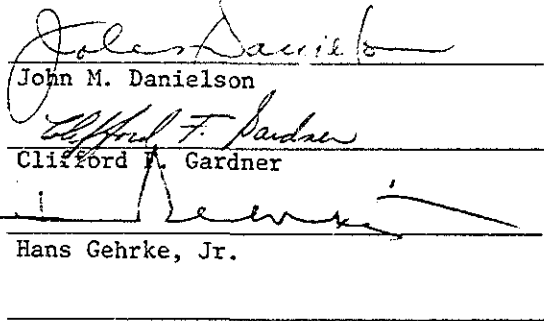 John Danielson
John M. Danielson
Clifford F. Gardner
Clifford F. Gardner
Hans Gehrke, Jr.